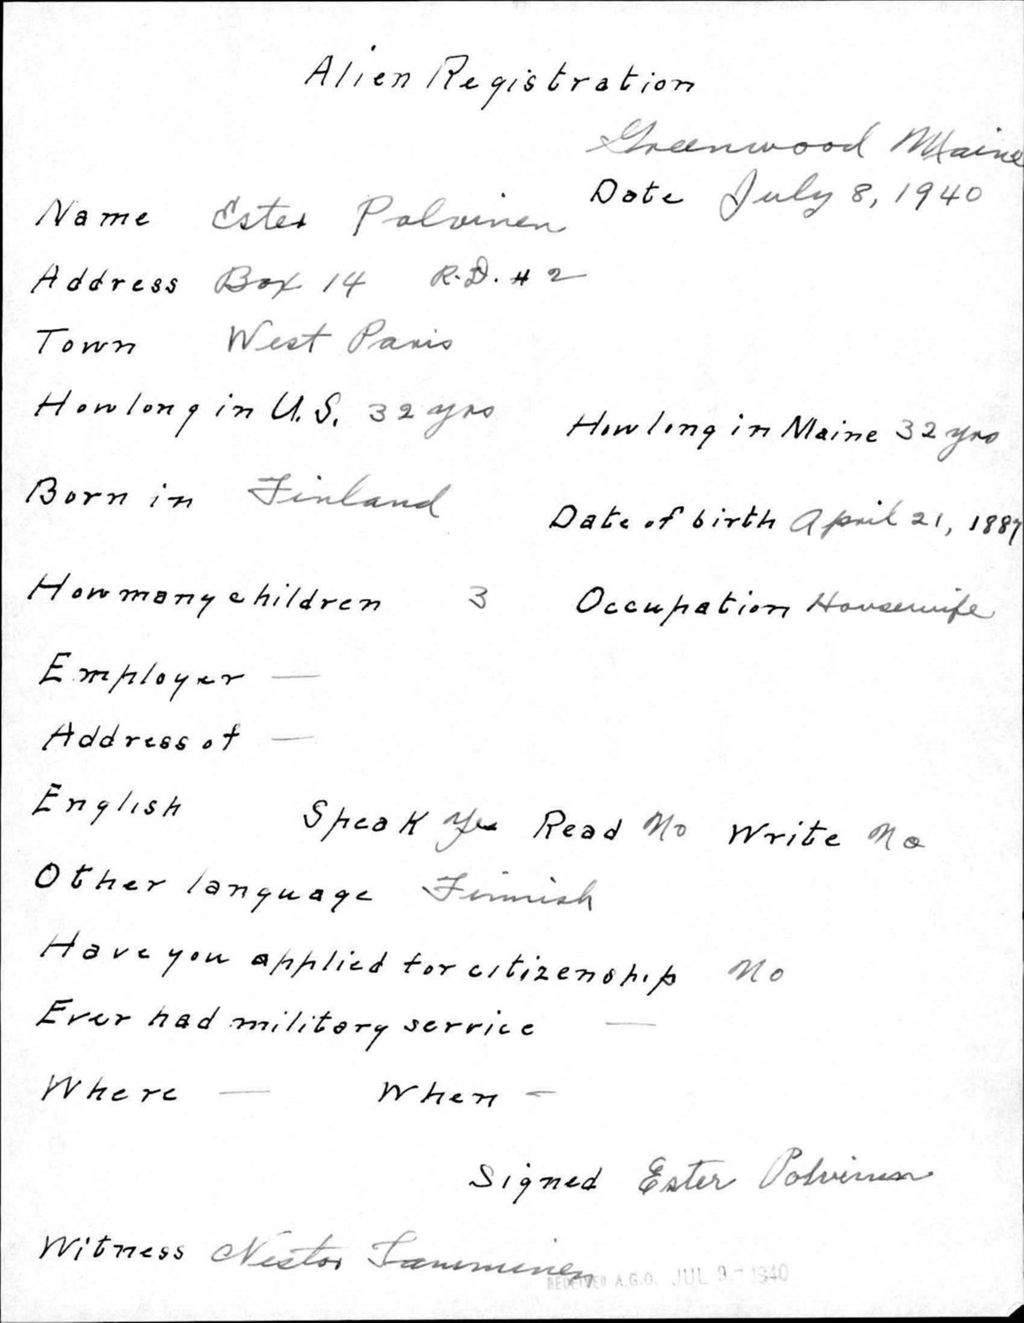 Alien Registration
Greenwood Maine
Date July 8, 1940
Name Ester Polvinen
Address Box 14 R.D. # 2
Town West Paris
How long in U.S. 32 yrs
How long in Maine 32 yrs
Born in Finland
Date of birth April 21, 1887
How many children 3
Occupation Housewife
Employer —
Address of —
English Speak Yes Read No Write No
Other language Finnish
Have you applied for citizenship No
Ever had military service —
Where — When —
Signed Ester Polvinen
Witness Nestor Tamminen
RECEIVED A.G.O. JUL 9 - 1940